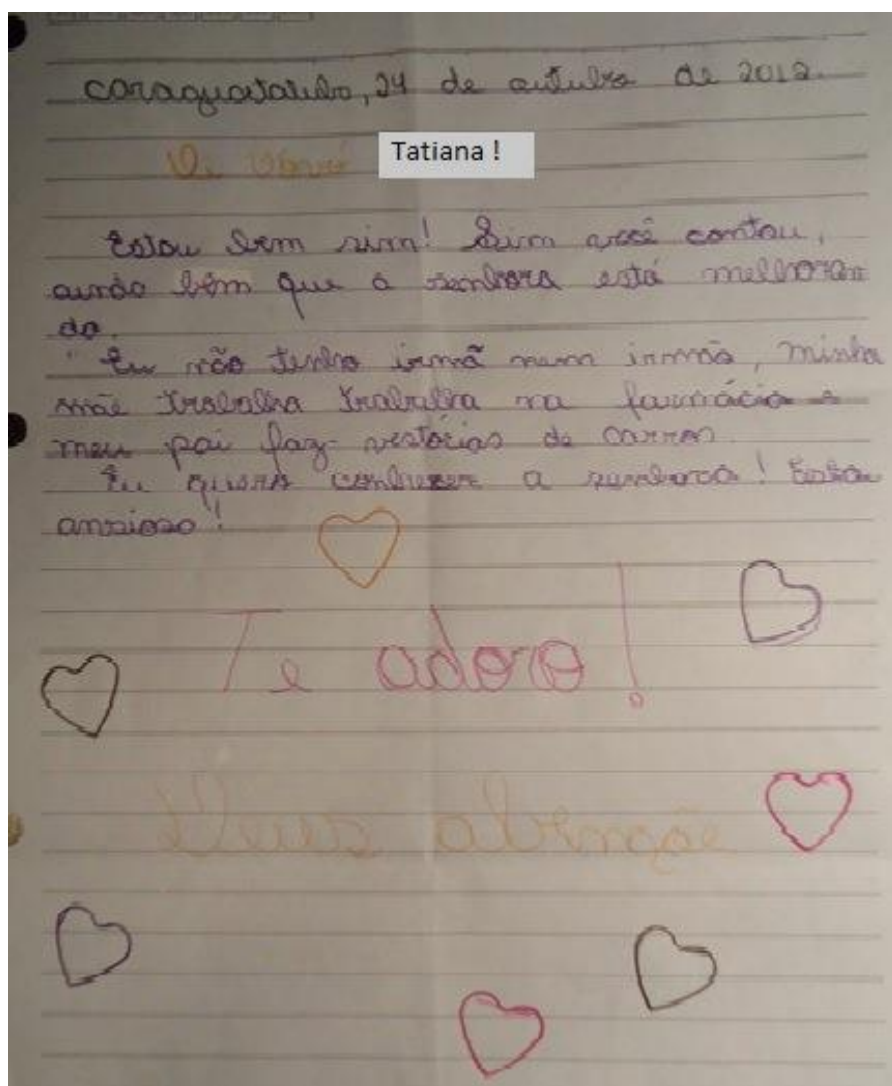 Caraguatatuba, 24 de outubro de 2012.
Oi vovó Tatiana !
Estou bem sim! Sim você contou,
ainda bem que a senhora está melhoran
do.
Eu não tenho irmã nem irmão, minha
mãe trabalha trabalha na farmácia e
meu pai faz vistorias de carros.
Eu quero conhecer a senhora! Estou
ansioso!
Te adoro!
Deus abençõe